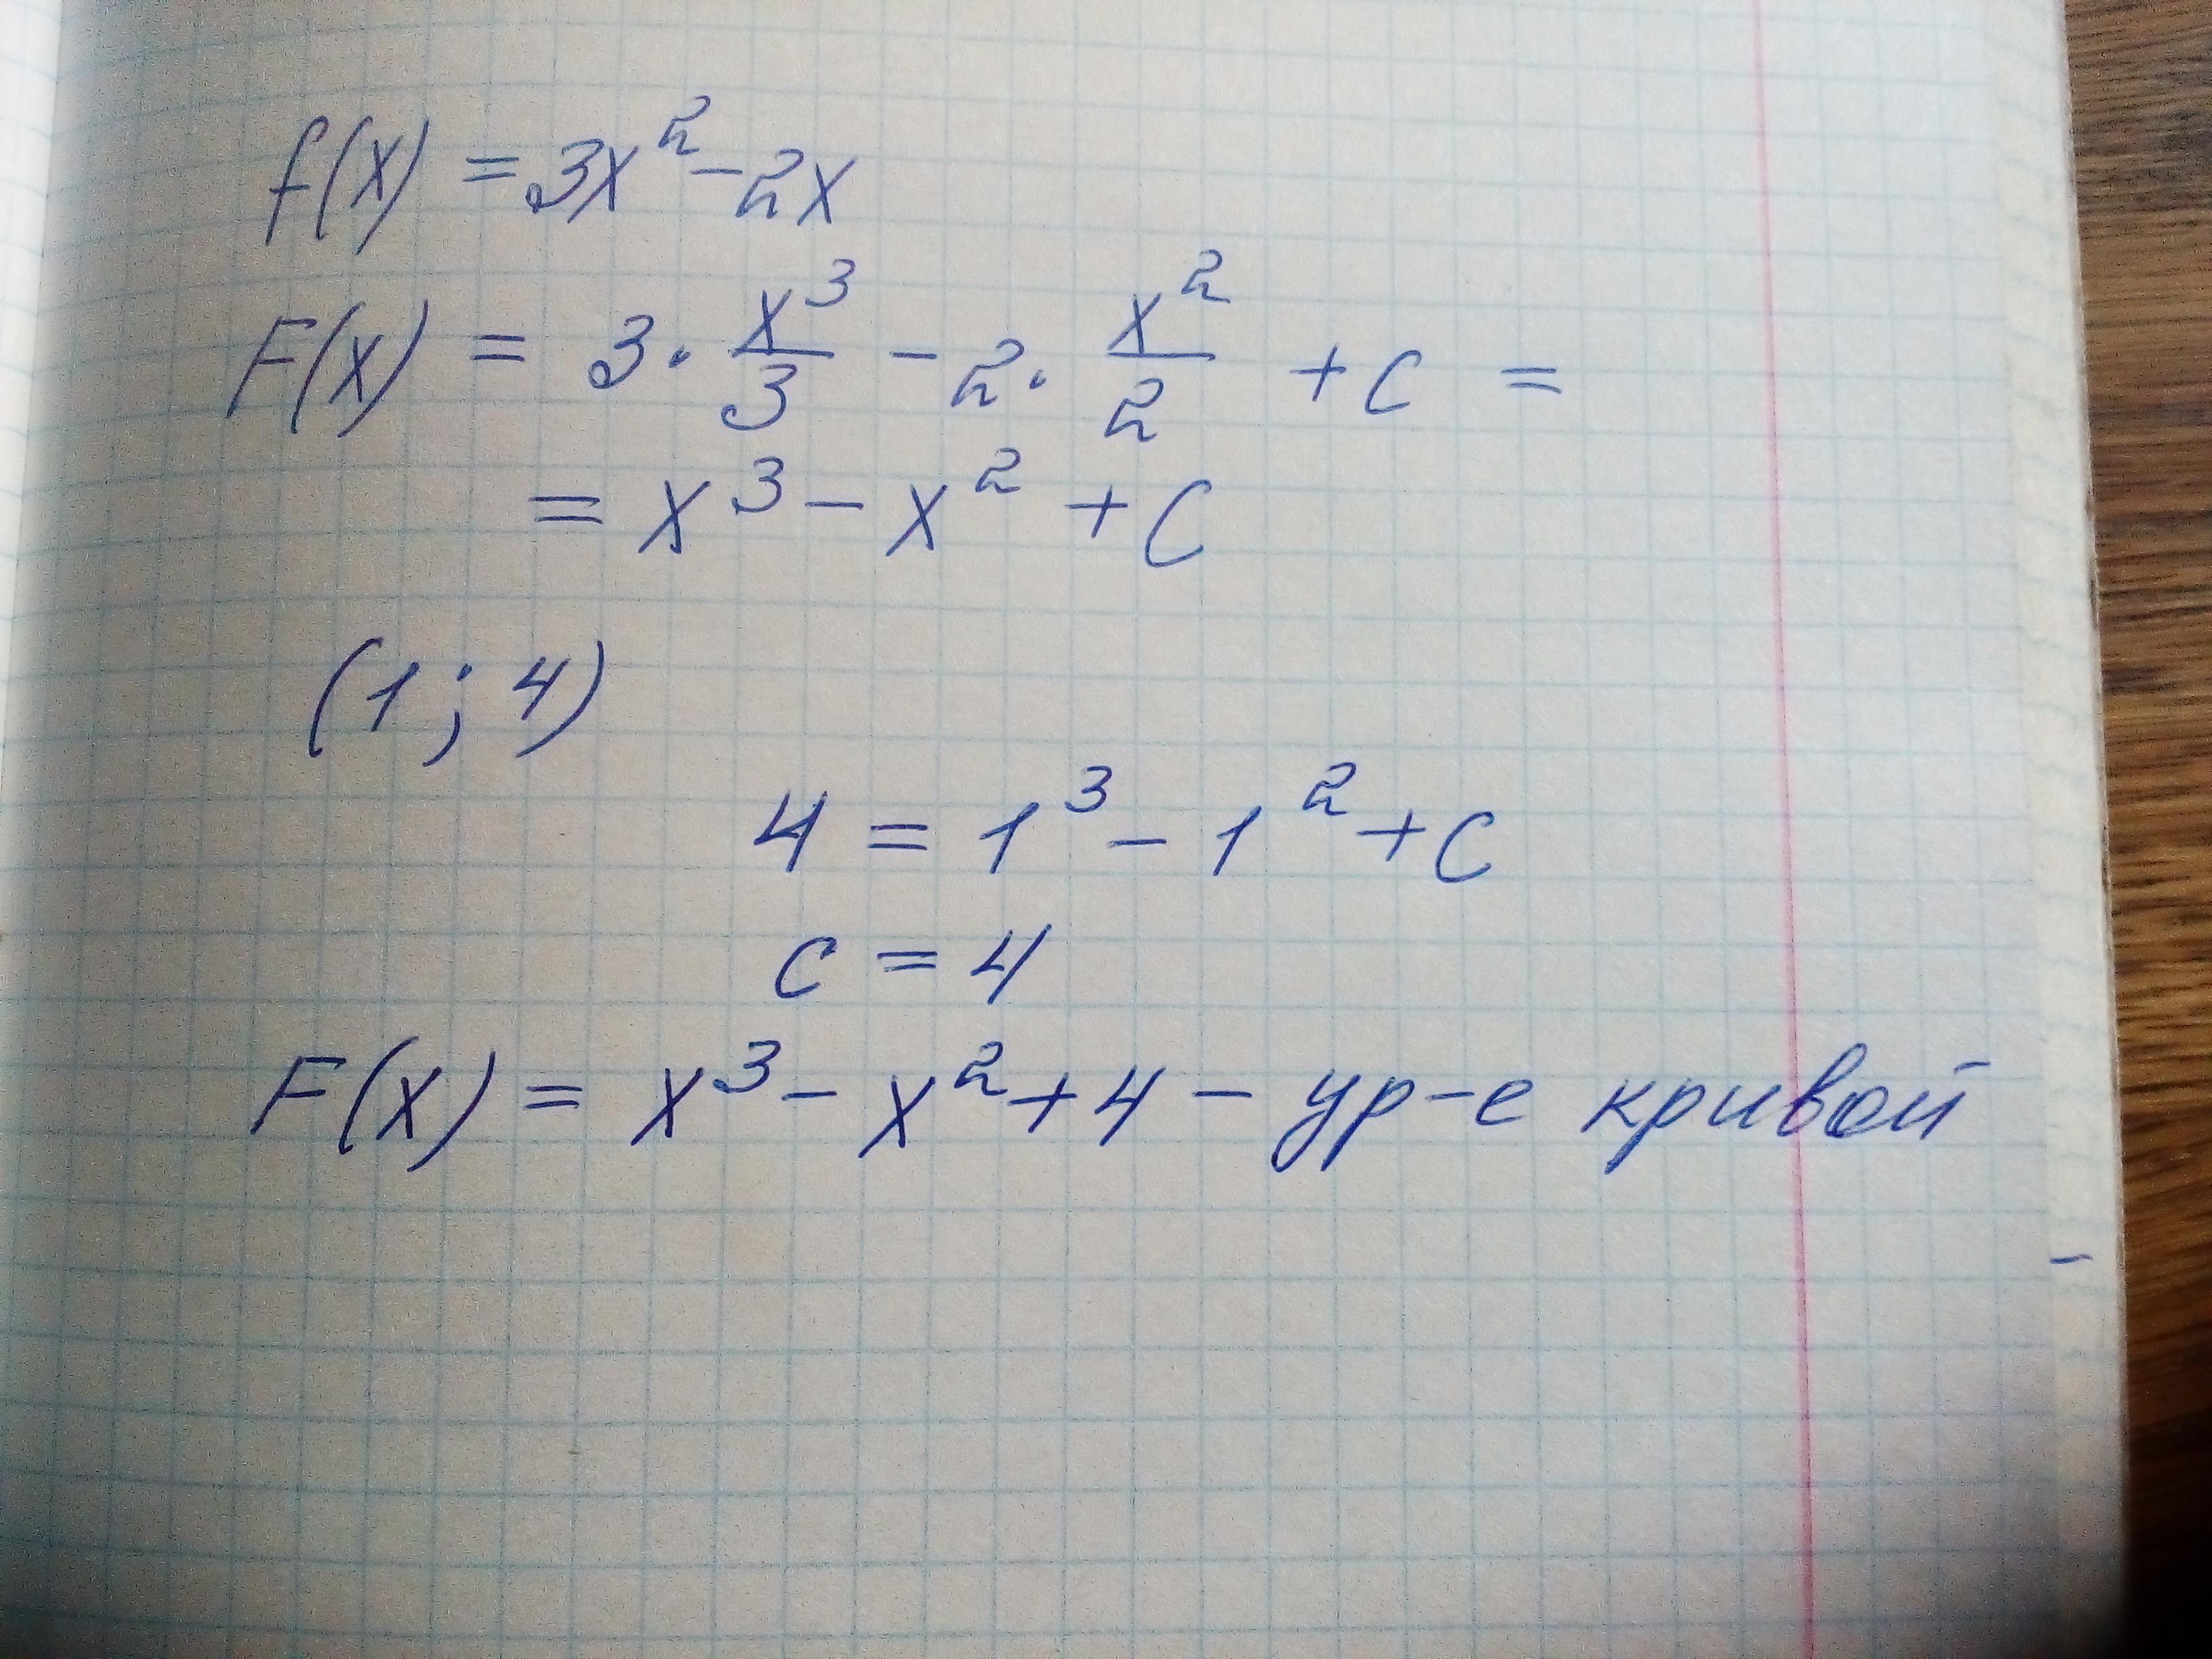 f(x) = 3x² - 2x
F(x) = 3 · x³/3 - 2 · x²/2 + C =
= x³ - x² + C
(1; 4)
4 = 1³ - 1² + C
C = 4
F(x) = x³ - x² + 4 - ур-е кривой